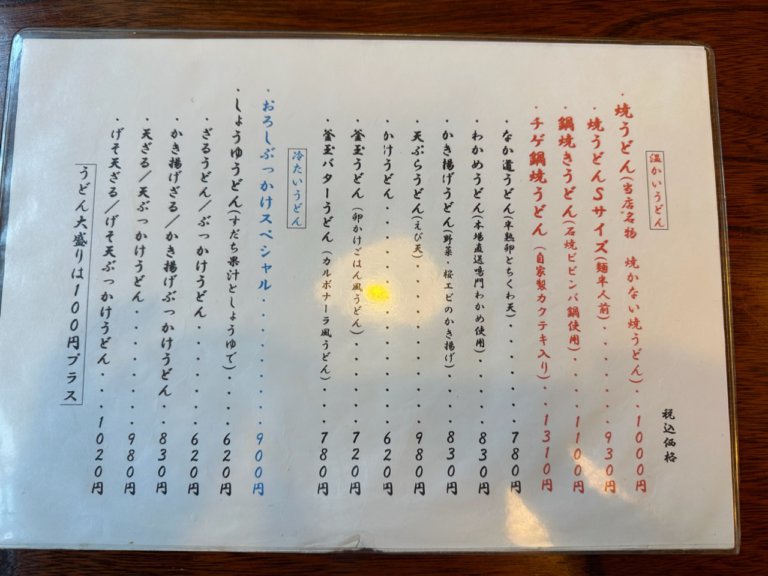 税込価格
温かいうどん
・焼うどん(当店名物 焼かない焼うどん)・・1000円
・焼うどんSサイズ(麺半人前)・・・・・930円
・鍋焼きうどん(石焼ビビンバ鍋使用)・・・1100円
・チゲ鍋焼うどん(自家製カクテキ入り)・・1310円
・なか道うどん(半熟卵とちくわ天)・・・・780円
・わかめうどん(本場直送鳴門わかめ使用)・・・830円
・かき揚げうどん(野菜・桜エビのかき揚げ)・・・830円
・天ぷらうどん(えび天)・・・・・・・・980円
・かけうどん・・・・・・・・・・・・620円
・釜玉うどん(卵かけごはん風うどん)・・・・720円
・釜玉バターうどん(カルボナーラ風うどん)・・・780円
冷たいうどん
・おろしぶっかけスペシャル・・・・・・・900円
・しょうゆうどん(すだち果汁としょうゆで)・・・620円
・ざるうどん/ぶっかけうどん・・・・・・620円
・かき揚げざる/かき揚げぶっかけうどん・・830円
・天ざる/天ぶっかけうどん・・・・・・・980円
・げそ天ざる/げそ天ぶっかけうどん・・・1020円
うどん大盛りは100円プラス